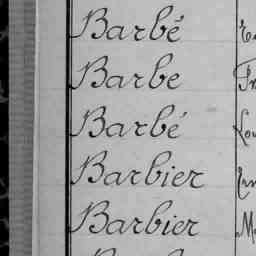 Barbé
Barbe
Barbé
Barbier
Barbier